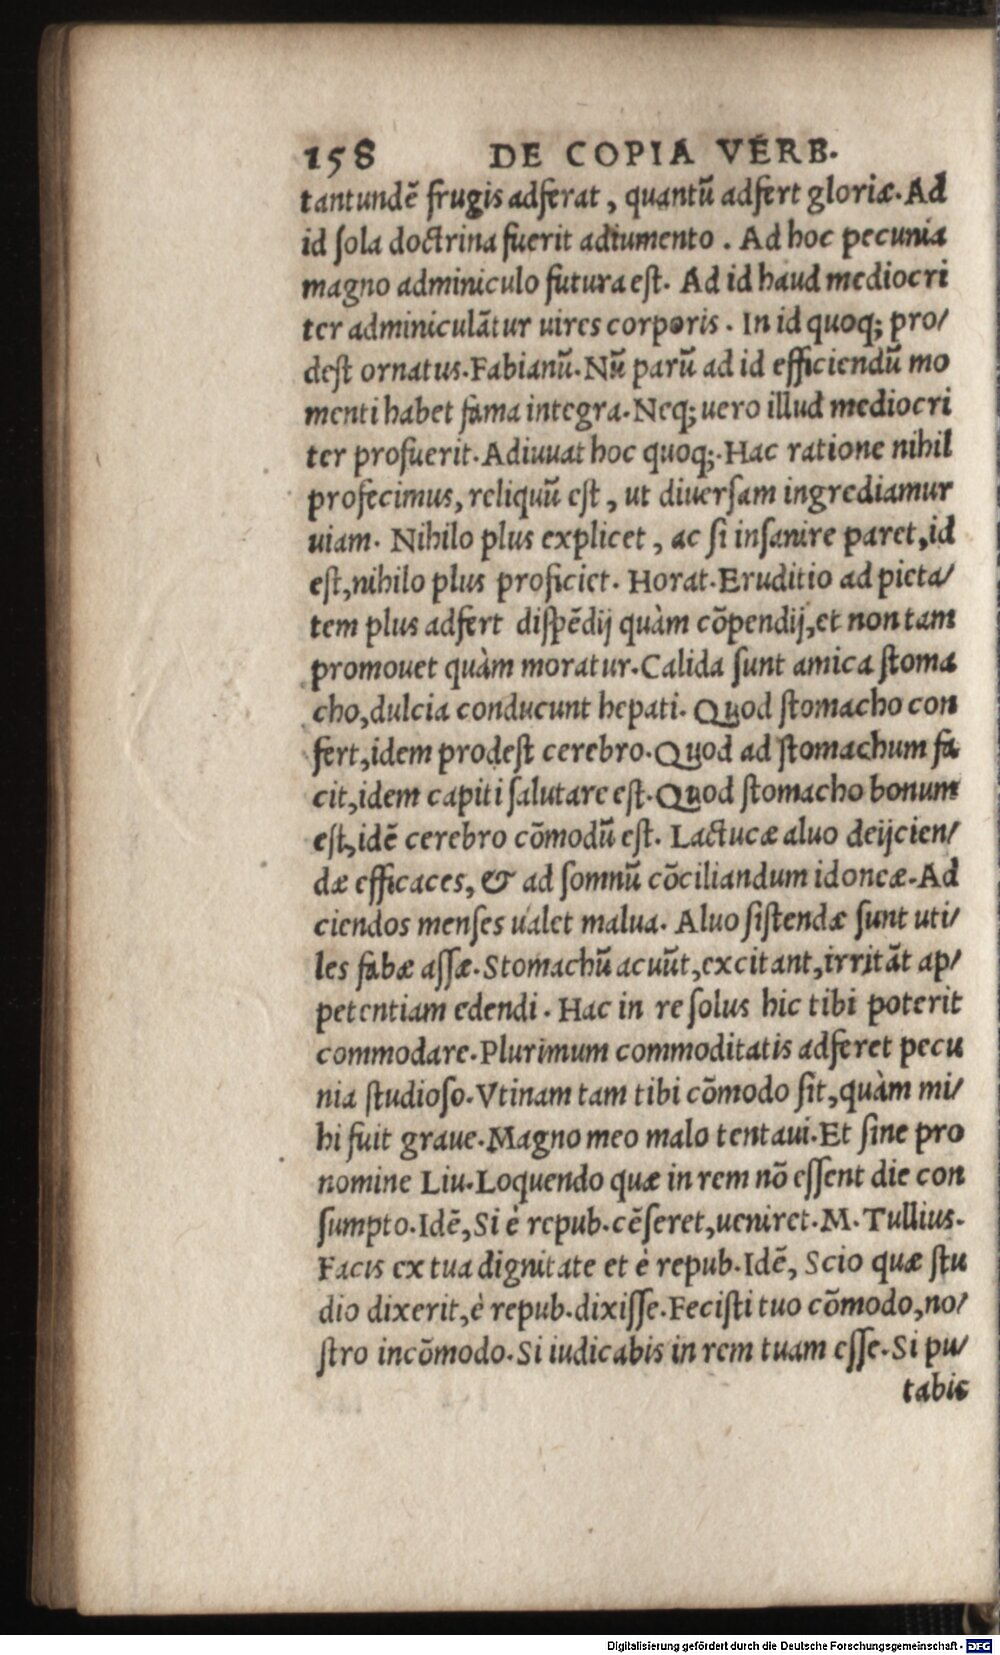 158 DE COPIA VERB.
tantundẽ frugis adferat, quantũ adfert gloriæ. Ad
id ſola doctrina fuerit adiumento. Ad hoc pecunia
magno adminiculo futura eſt. Ad id haud mediocri
ter adminiculãtur uires corporis. In id quoq; pro/
deſt ornatus. Fabianũ. Nũ parũ ad id efficiendũ mo
menti habet fama integra. Neq; uero illud mediocri
ter profuerit. Adiuuat hoc quoq;. Hac ratione nihil
profecimus, reliquũ eſt, ut diuerſam ingrediamur
uiam. Nihilo plus explicet, ac ſi inſanire paret, id
eſt, nihilo plus proficiet. Horat. Eruditio ad pieta/
tem plus adfert diſpẽdij quàm cõpendij, et non tam
promouet quàm moratur. Calida ſunt amica ſtoma
cho, dulcia conducunt hepati. Quod ſtomacho con
fert, idem prodeſt cerebro. Quod ad ſtomachum fa
cit, idem capiti ſalutare eſt. Quod ſtomacho bonum
eſt, idẽ cerebro cõmodũ eſt. Lactucæ aluo deijcien/
dæ efficaces, & ad ſomnũ cõciliandum idoneæ. Ad
ciendos menſes ualet malua. Aluo ſiſtendæ ſunt uti/
les fabæ aſſæ. Stomachũ acuũt, excitant, irritãt ap/
petentiam edendi. Hac in re ſolus hic tibi poterit
commodare. Plurimum commoditatis adferet pecu
nia ſtudioſo. Vtinam tam tibi cõmodo ſit, quàm mi/
hi fuit graue. Magno meo malo tentaui. Et ſine pro
nomine Liu. Loquendo quæ in rem nõ eſſent die con
ſumpto. Idẽ, Si è repub. cẽſeret, ueniret. M. Tullius.
Facis ex tua dignitate et è repub. Idẽ, Scio quæ ſtu
dio dixerit, è repub. dixiſſe. Feciſti tuo cõmodo, no/
ſtro incõmodo. Si iudicabis in rem tuam eſſe. Si pu/
tabis
Digitalisierung gefördert durch die Deutsche Forschungsgemeinschaft - DFG